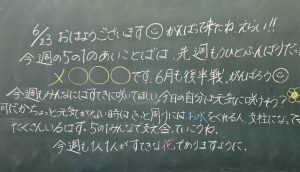 6/23 おはようございます がんばって来たね、えらい!!
今週の5の1のあいことばは、先週もうひとふんばりだっ
〆○○○です。6月も後半戦、がんばろう
今週もみんなにはすてきに咲いてほしい。今日の自分は元気に咲けそう?
何だかちょっと元気がない時は、きっと周りにはお水をくれる人、支柱になって
たくさんいるはず。5の1みんなで支え合っていこうね。
今週も1人1人がすてきな花でありますように。